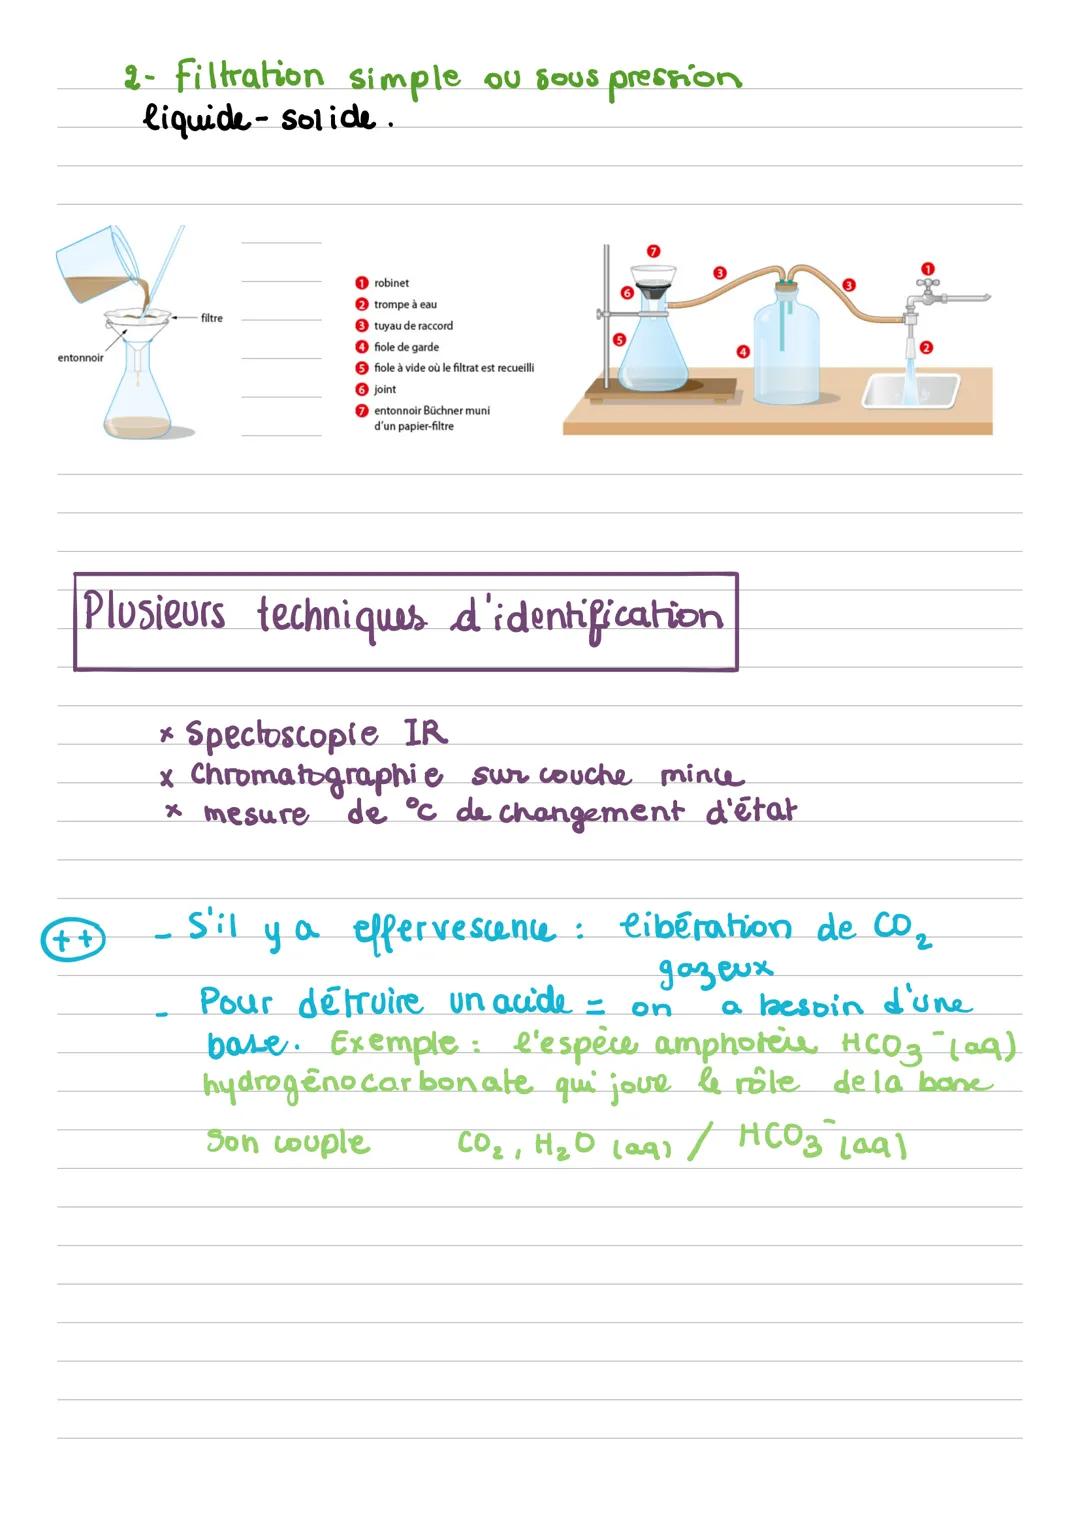 2- Filtration simple ou sous pression
liquide-solide.
filtre
entonnoir
1 robinet
2 trompe à eau
3 tuyau de raccord
4 fiole de garde
5 fiole à vide où le filtrat est recueilli
6 joint
7 entonnoir Büchner muni
d'un papier-filtre
7
6
5
3
4
3
1
2
Plusieurs techniques d'identification
x Spectoscopie IR
x Chromatographie sur couche mince
x mesure de °c de changement d'état
++ - S'il y a effervescence : libération de CO₂
gazeux
- Pour détruire un acide = on a besoin d'une
base. Exemple : l'espèce amphotère HCO₃⁻(aq)
hydrogénocarbonate qui joue le rôle de la base
Son couple CO₂, H₂O (aq) / HCO₃⁻(aq)